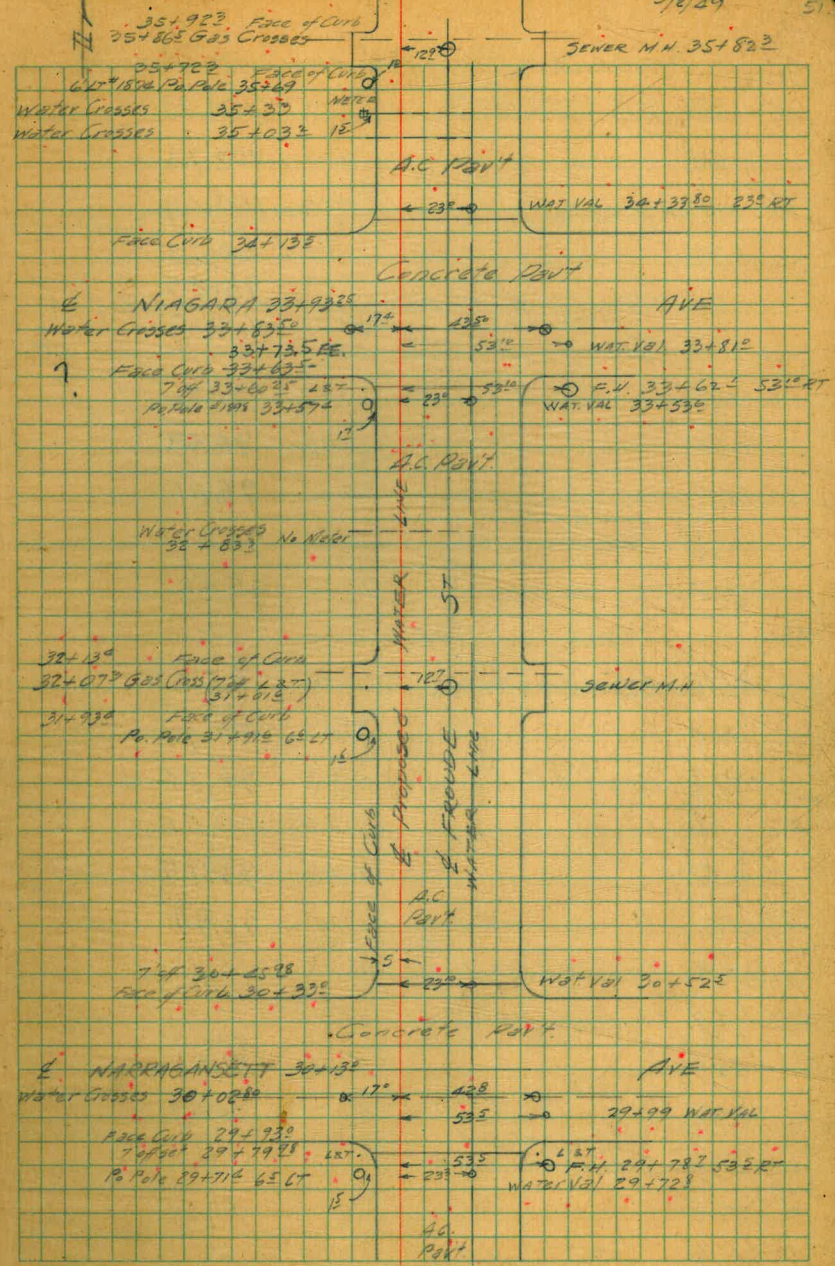 51
35+92³ Face of Curb
35+86⁵ Gas Crosses
12⁹
SEWER M.H. 35+82³
35+72³ Face of Curb
6 LT #1874 Po. Pole 35+69
18
METER
Water Crosses 35+33
Water Crosses 35+03² 1⁵
A.C Pav't
23⁰
WAT. VAL 34+33⁸⁰ 23⁰ RT
Face Curb 34+13⁵
Concrete Pav't
₵ NIAGARA 33+93²⁵ AVE
Water Crosses 33+83⁵⁰ 17⁴ 43⁵⁰
33+73.5 EE. 53¹⁰ WAT. Val 33+81⁰
? Face Curb 33+63⁵
7'off 33+60²⁵ L&T 53¹⁰ F.H. 33+62¹ 53¹⁰ RT
Po. Pole #1898 33+57⁴ 23⁰ WAT. VAL 33+53⁶
1⁷
A.C. Pav't.
Water Crosses No Meter
32+83³
32+13⁰ Face of Curb
32+07³ Gas Cross (7'off L&T)
31+01⁸
12⁷
Sewer M.H
31+93⁰ Face of Curb
Po. Pole 31+91⁶ 6⁵ LT
1⁶
Face of Curb
₵ Proposed WATER LINE
₵ FROUDE ST
WATER LINE
A.C
Pav't.
5
7'off 30+45⁹⁸
Face of Curb 30+33⁰ 23¹⁰ Wat Val 30+52⁵
Concrete Pav't.
₵ NARRAGANSETT 30+13⁰ AVE
Water Crosses 30+02⁸⁰ 17⁰ 42.8
53.5 29+99 WAT. VAL
Face Curb 29+93⁰
7'offset 29+79⁹⁸ L&T 53⁵ L&T F.H. 29+78⁷ 53⁵ RT
Po Pole 29+71⁴ 6⁵ LT 23³ Water Val 29+72⁸
1⁵
A.C.
Pav't.